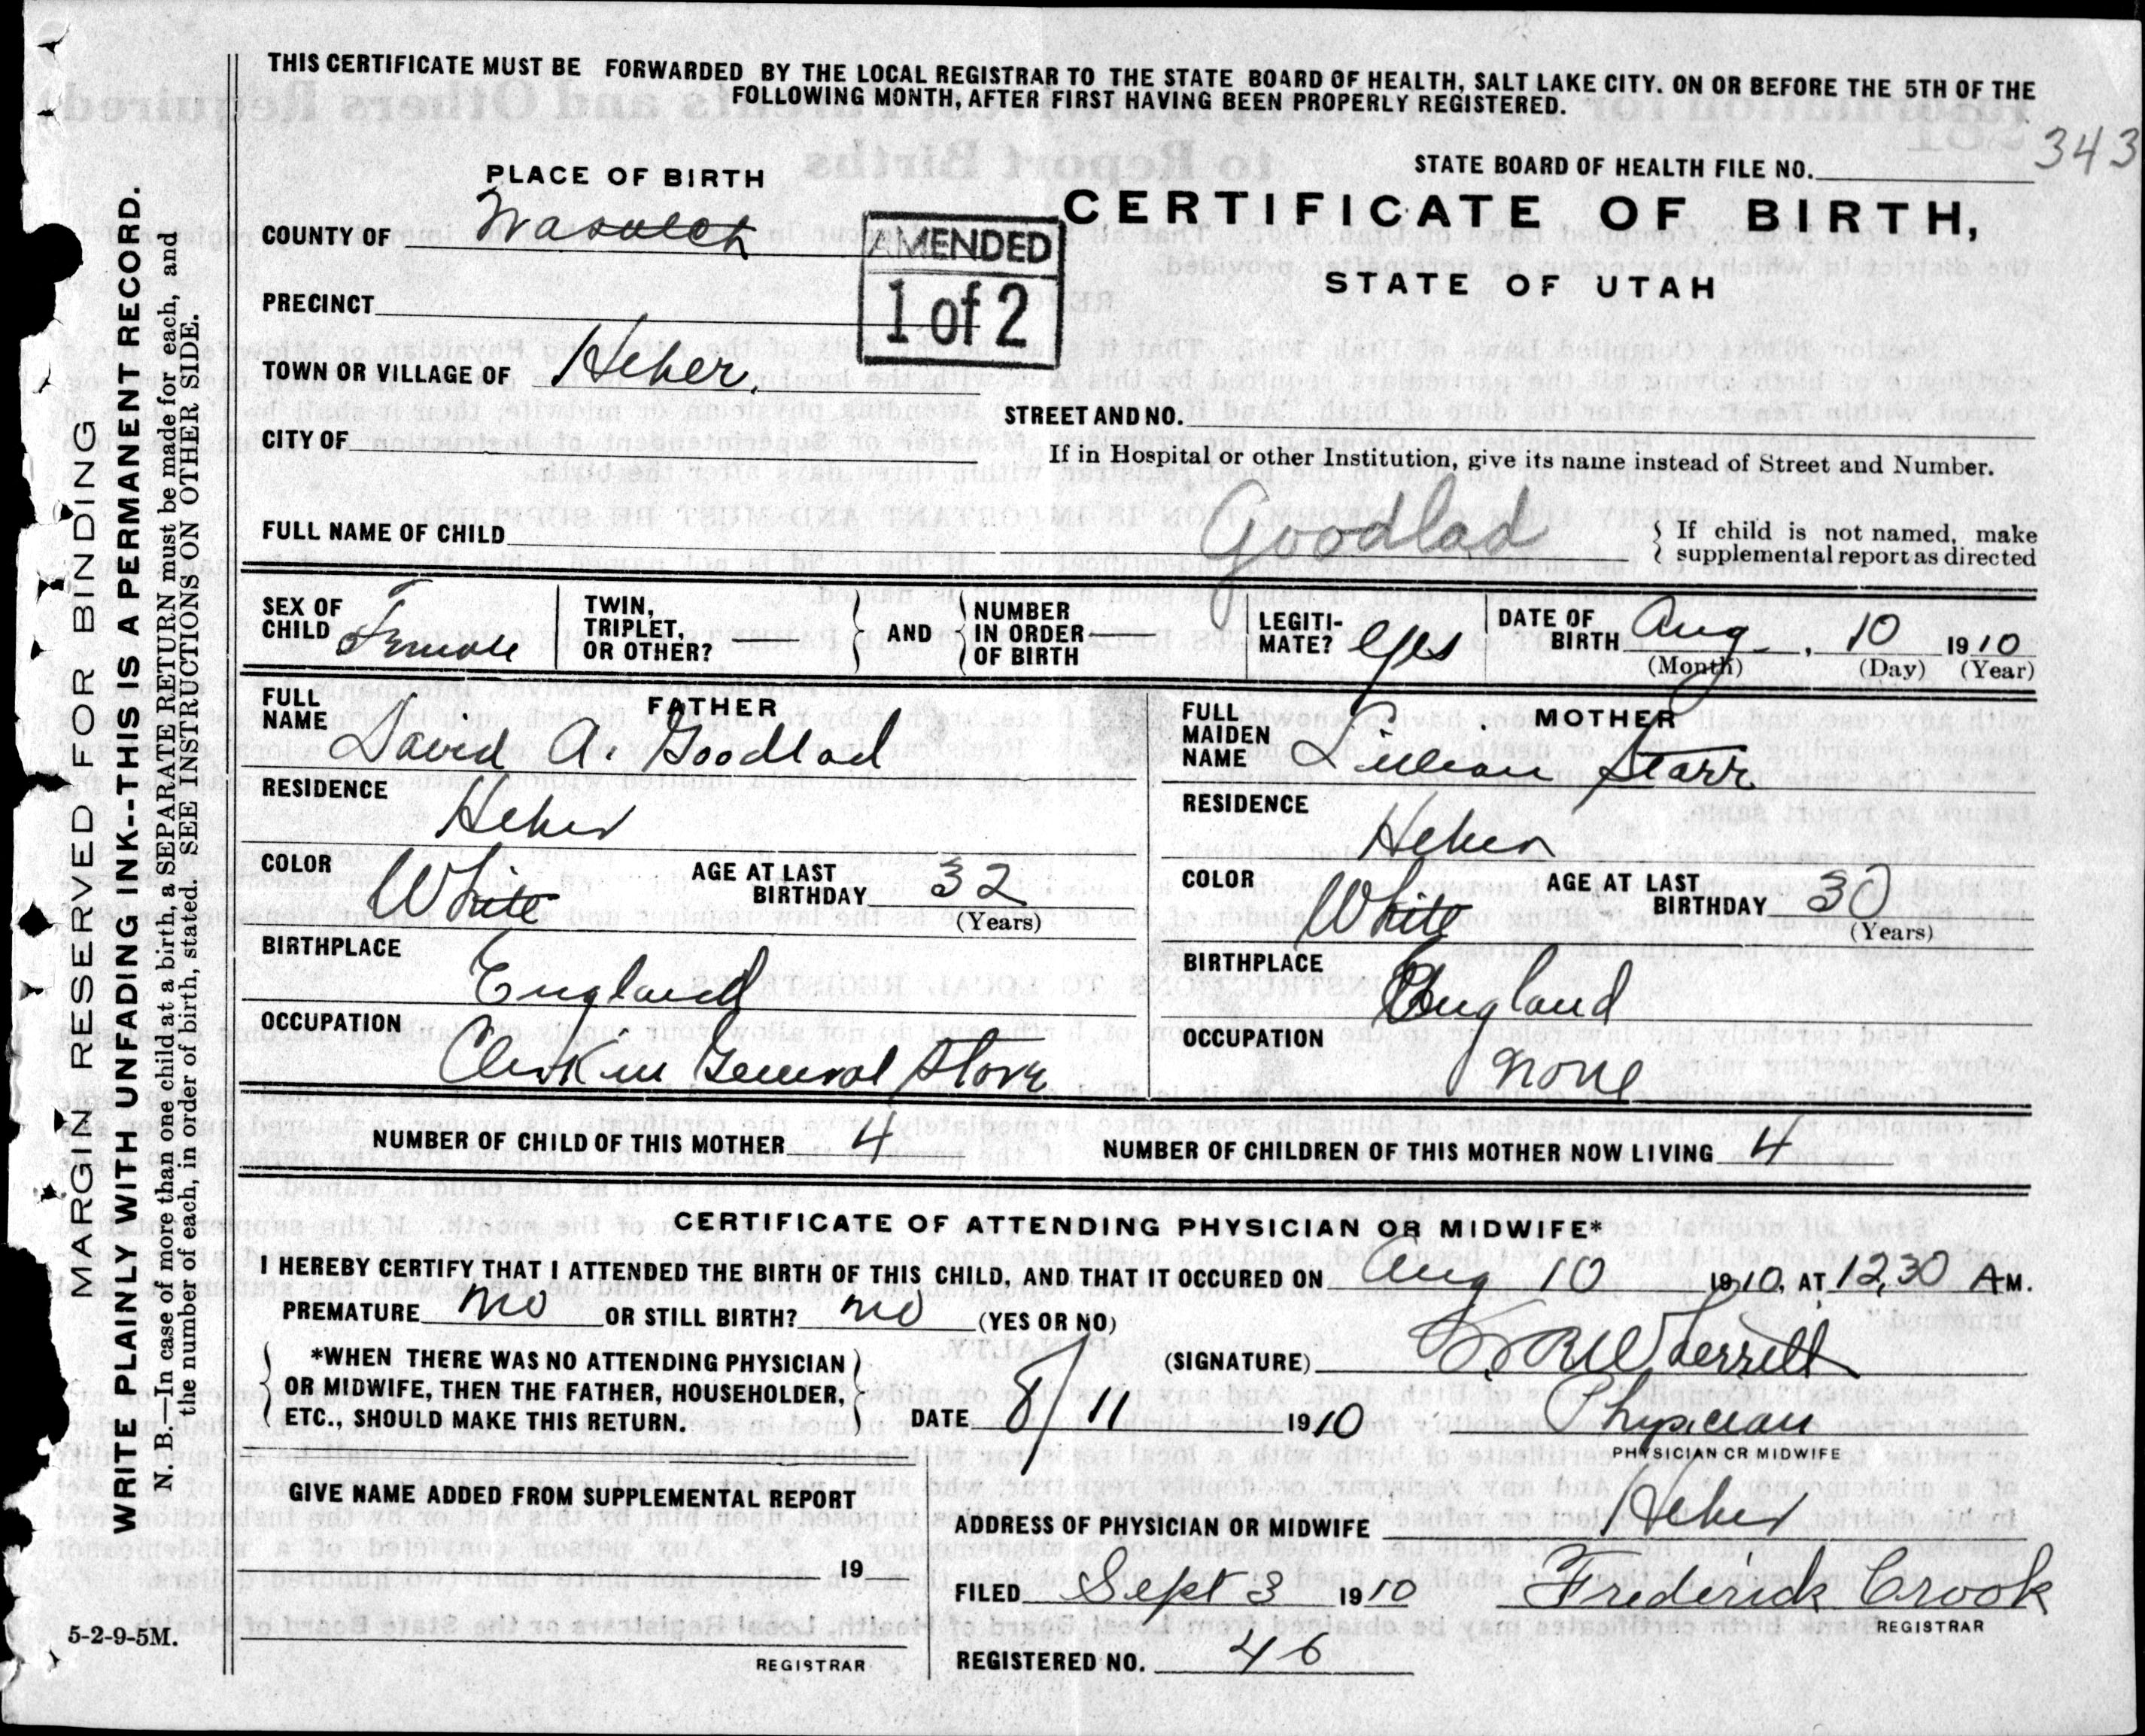 THIS CERTIFICATE MUST BE FORWARDED BY THE LOCAL REGISTRAR TO THE STATE BOARD OF HEALTH, SALT LAKE CITY. ON OR BEFORE THE 5TH OF THE
FOLLOWING MONTH, AFTER FIRST HAVING BEEN PROPERLY REGISTERED.
343
STATE BOARD OF HEALTH FILE NO.
PLACE OF BIRTH
CERTIFICATE OF BIRTH,
STATE OF UTAH
COUNTY OF Wasatch
AMENDED
1 of 2
PRECINCT
TOWN OR VILLAGE OF Heber.
STREET AND NO.
CITY OF
If in Hospital or other Institution, give its name instead of Street and Number.
FULL NAME OF CHILD Goodlad
{ If child is not named, make
{ supplemental report as directed
SEX OF CHILD Female
TWIN, TRIPLET, OR OTHER?
} AND {
NUMBER IN ORDER OF BIRTH
LEGITI-MATE? Yes
DATE OF BIRTH Aug, 10 1910
(Month) (Day) (Year)
FATHER
FULL NAME David A. Goodlad
RESIDENCE Heber
COLOR White
AGE AT LAST BIRTHDAY 32
(Years)
BIRTHPLACE England
OCCUPATION Clerk in General Store
MOTHER
FULL MAIDEN NAME Lillian Starr
RESIDENCE Heber
COLOR White
AGE AT LAST BIRTHDAY 30
(Years)
BIRTHPLACE England
OCCUPATION none
NUMBER OF CHILD OF THIS MOTHER 4
NUMBER OF CHILDREN OF THIS MOTHER NOW LIVING 4
CERTIFICATE OF ATTENDING PHYSICIAN OR MIDWIFE*
I HEREBY CERTIFY THAT I ATTENDED THE BIRTH OF THIS CHILD, AND THAT IT OCCURED ON Aug 10 1910, AT 12,30 A M.
PREMATURE no OR STILL BIRTH? no (YES OR NO)
*WHEN THERE WAS NO ATTENDING PHYSICIAN
OR MIDWIFE, THEN THE FATHER, HOUSEHOLDER,
ETC., SHOULD MAKE THIS RETURN.
(SIGNATURE)
DATE 8/11 1910
Physician
PHYSICIAN OR MIDWIFE
GIVE NAME ADDED FROM SUPPLEMENTAL REPORT
19
REGISTRAR
ADDRESS OF PHYSICIAN OR MIDWIFE Heber
FILED Sept 3 1910
Frederick Crook
REGISTRAR
REGISTERED NO. 46
5-2-9-5M.
MARGIN RESERVED FOR BINDING
WRITE PLAINLY WITH UNFADING INK--THIS IS A PERMANENT RECORD.
N. B.—In case of more than one child at a birth, a SEPARATE RETURN must be made for each, and
the number of each, in order of birth, stated. SEE INSTRUCTIONS ON OTHER SIDE.